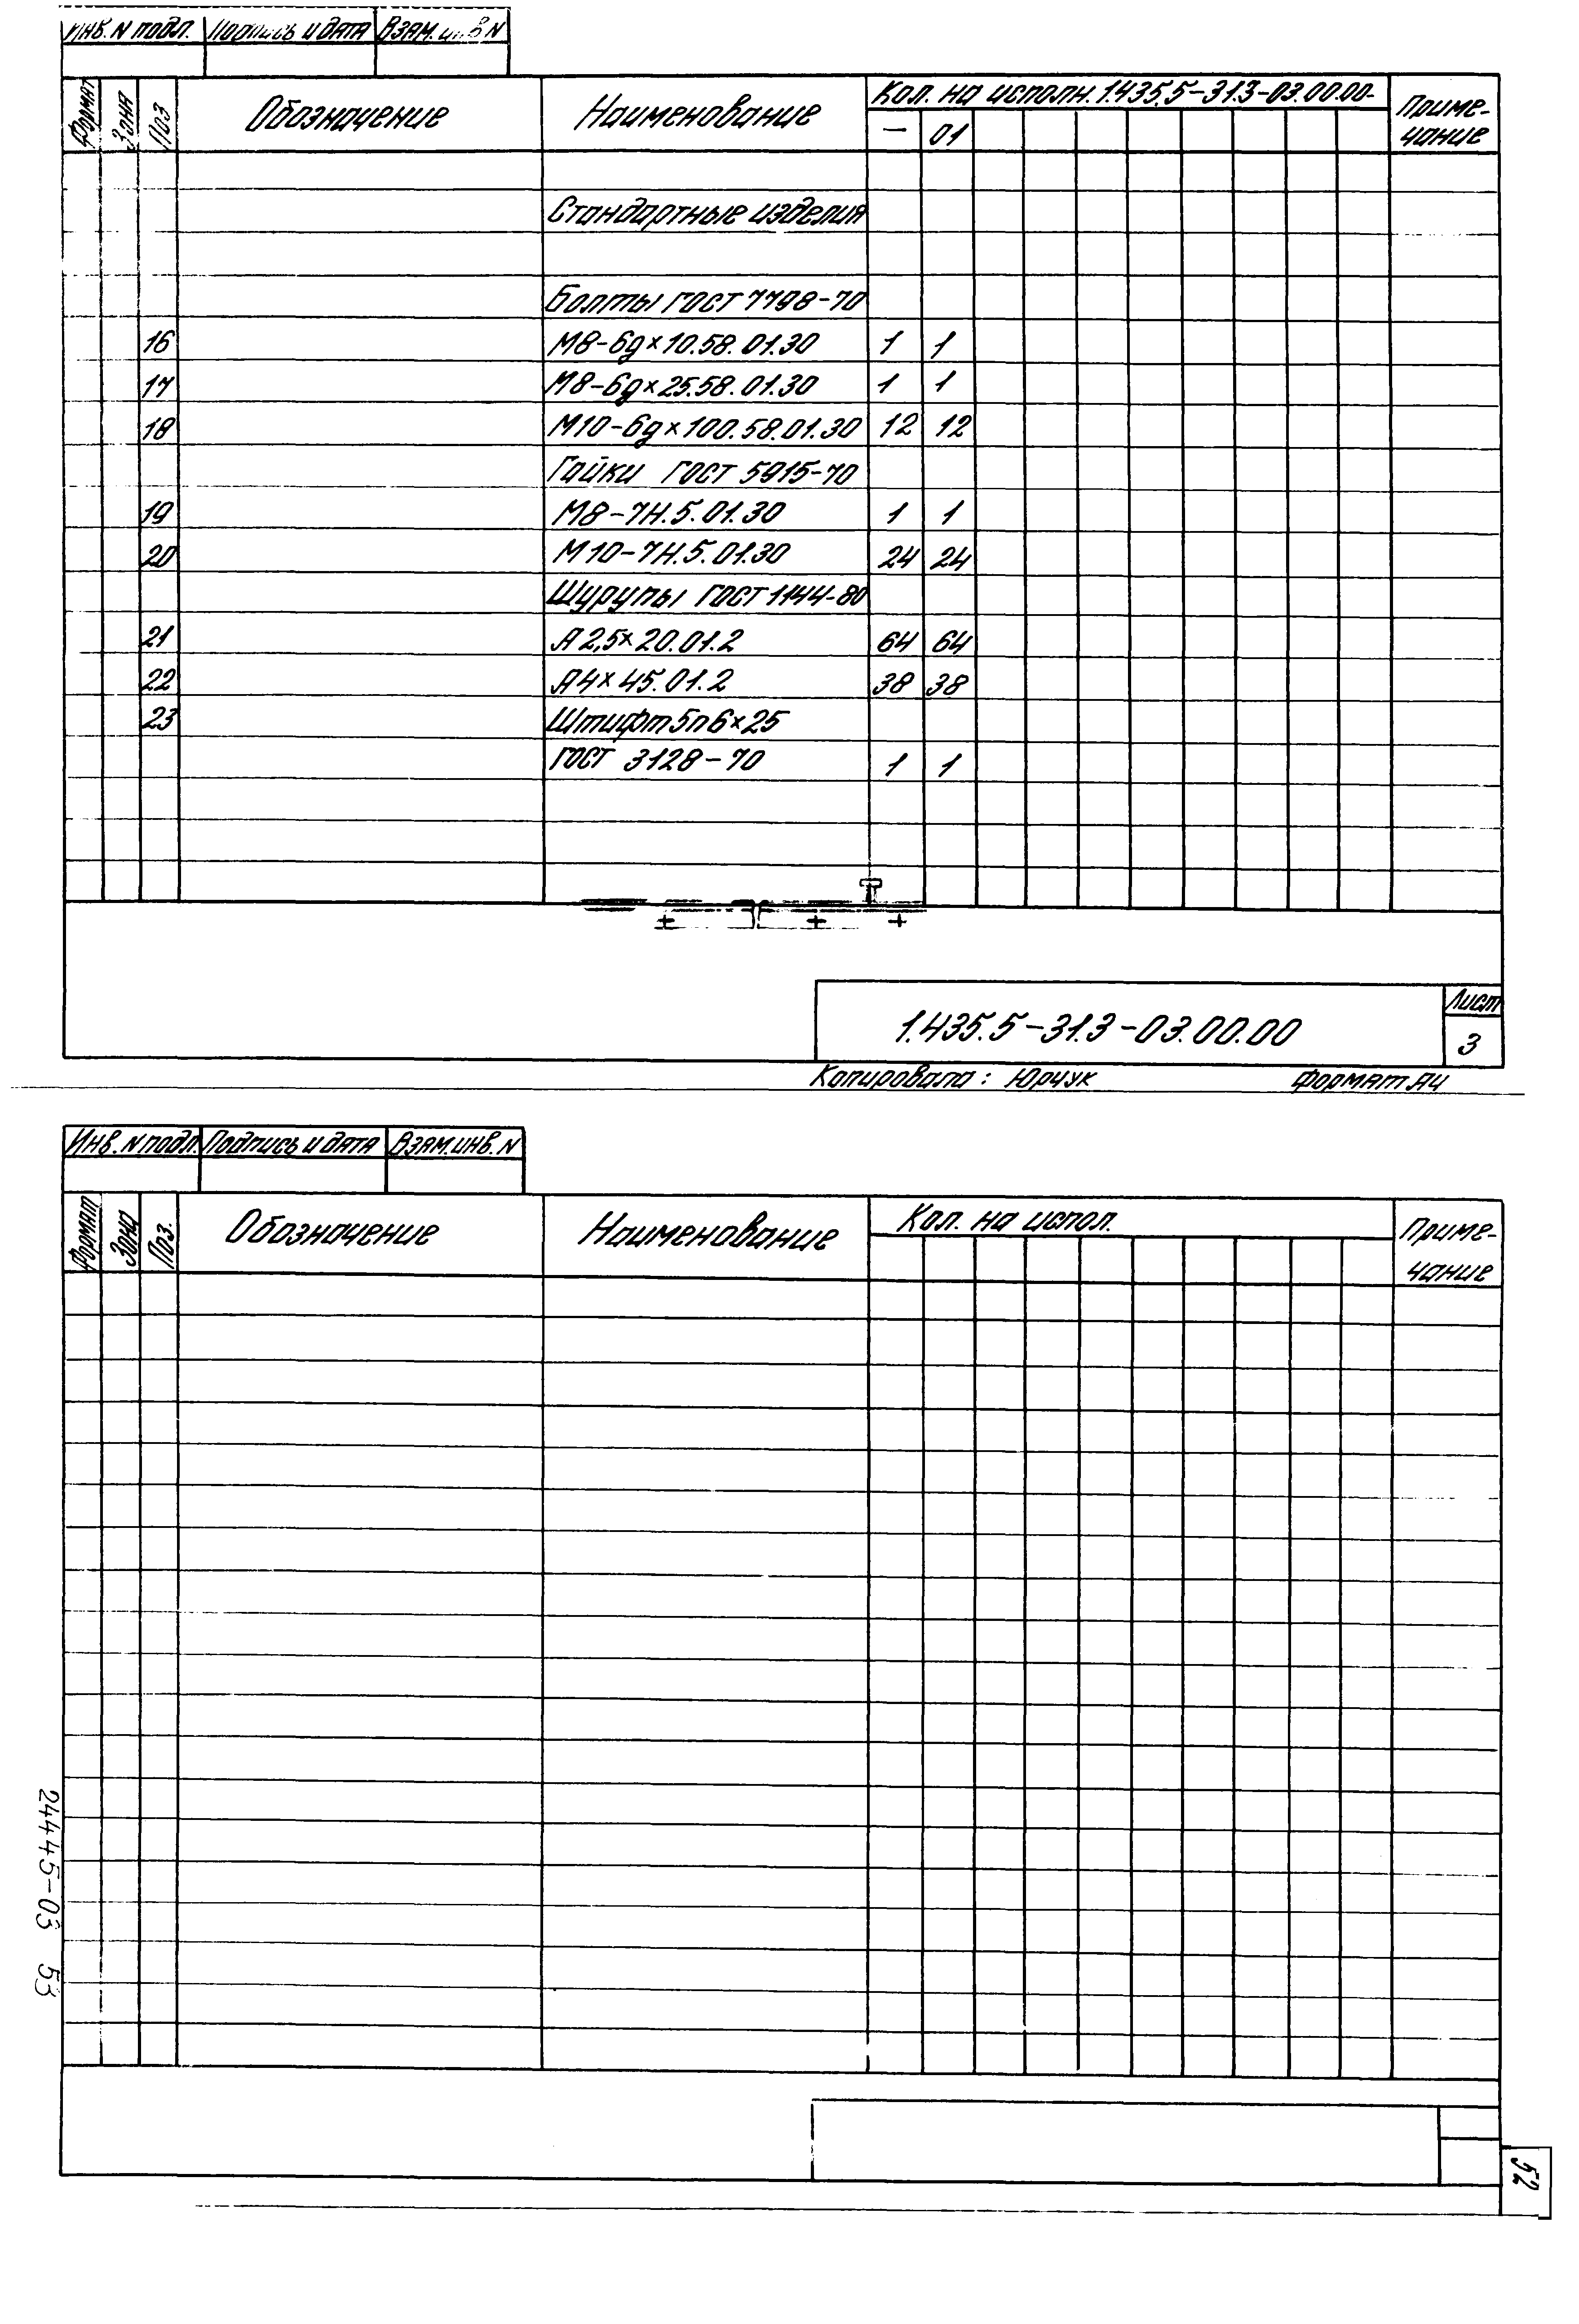 Инв. N подл. Подпись и дата Взам. инв N
Формат Зона Поз Обозначение Наименование Кол. на исполн. 1.435.5-31.3-03.00.00- Приме-
чание
— 01
Стандартные изделия
Болты ГОСТ 7798-70
16 М8-6g×10.58.01.30 1 1
17 М8-6g×25.58.01.30 1 1
18 М10-6g×100.58.01.30 12 12
Гайки ГОСТ 5915-70
19 М8-7Н.5.01.30 1 1
20 М10-7Н.5.01.30 24 24
Шурупы ГОСТ 1144-80
21 А2,5×20.01.2 64 64
22 А4×45.01.2 38 38
23 Штифт 5п6×25
ГОСТ 3128-70 1 1
1.435.5-31.3-03.00.00
Лист
3
Копировала: Юрчук Формат А4
Инв. N подл. Подпись и дата Взам. инв. N
Формат Зона Поз. Обозначение Наименование Кол. на испол. Приме-
чание
24445-03 53
52